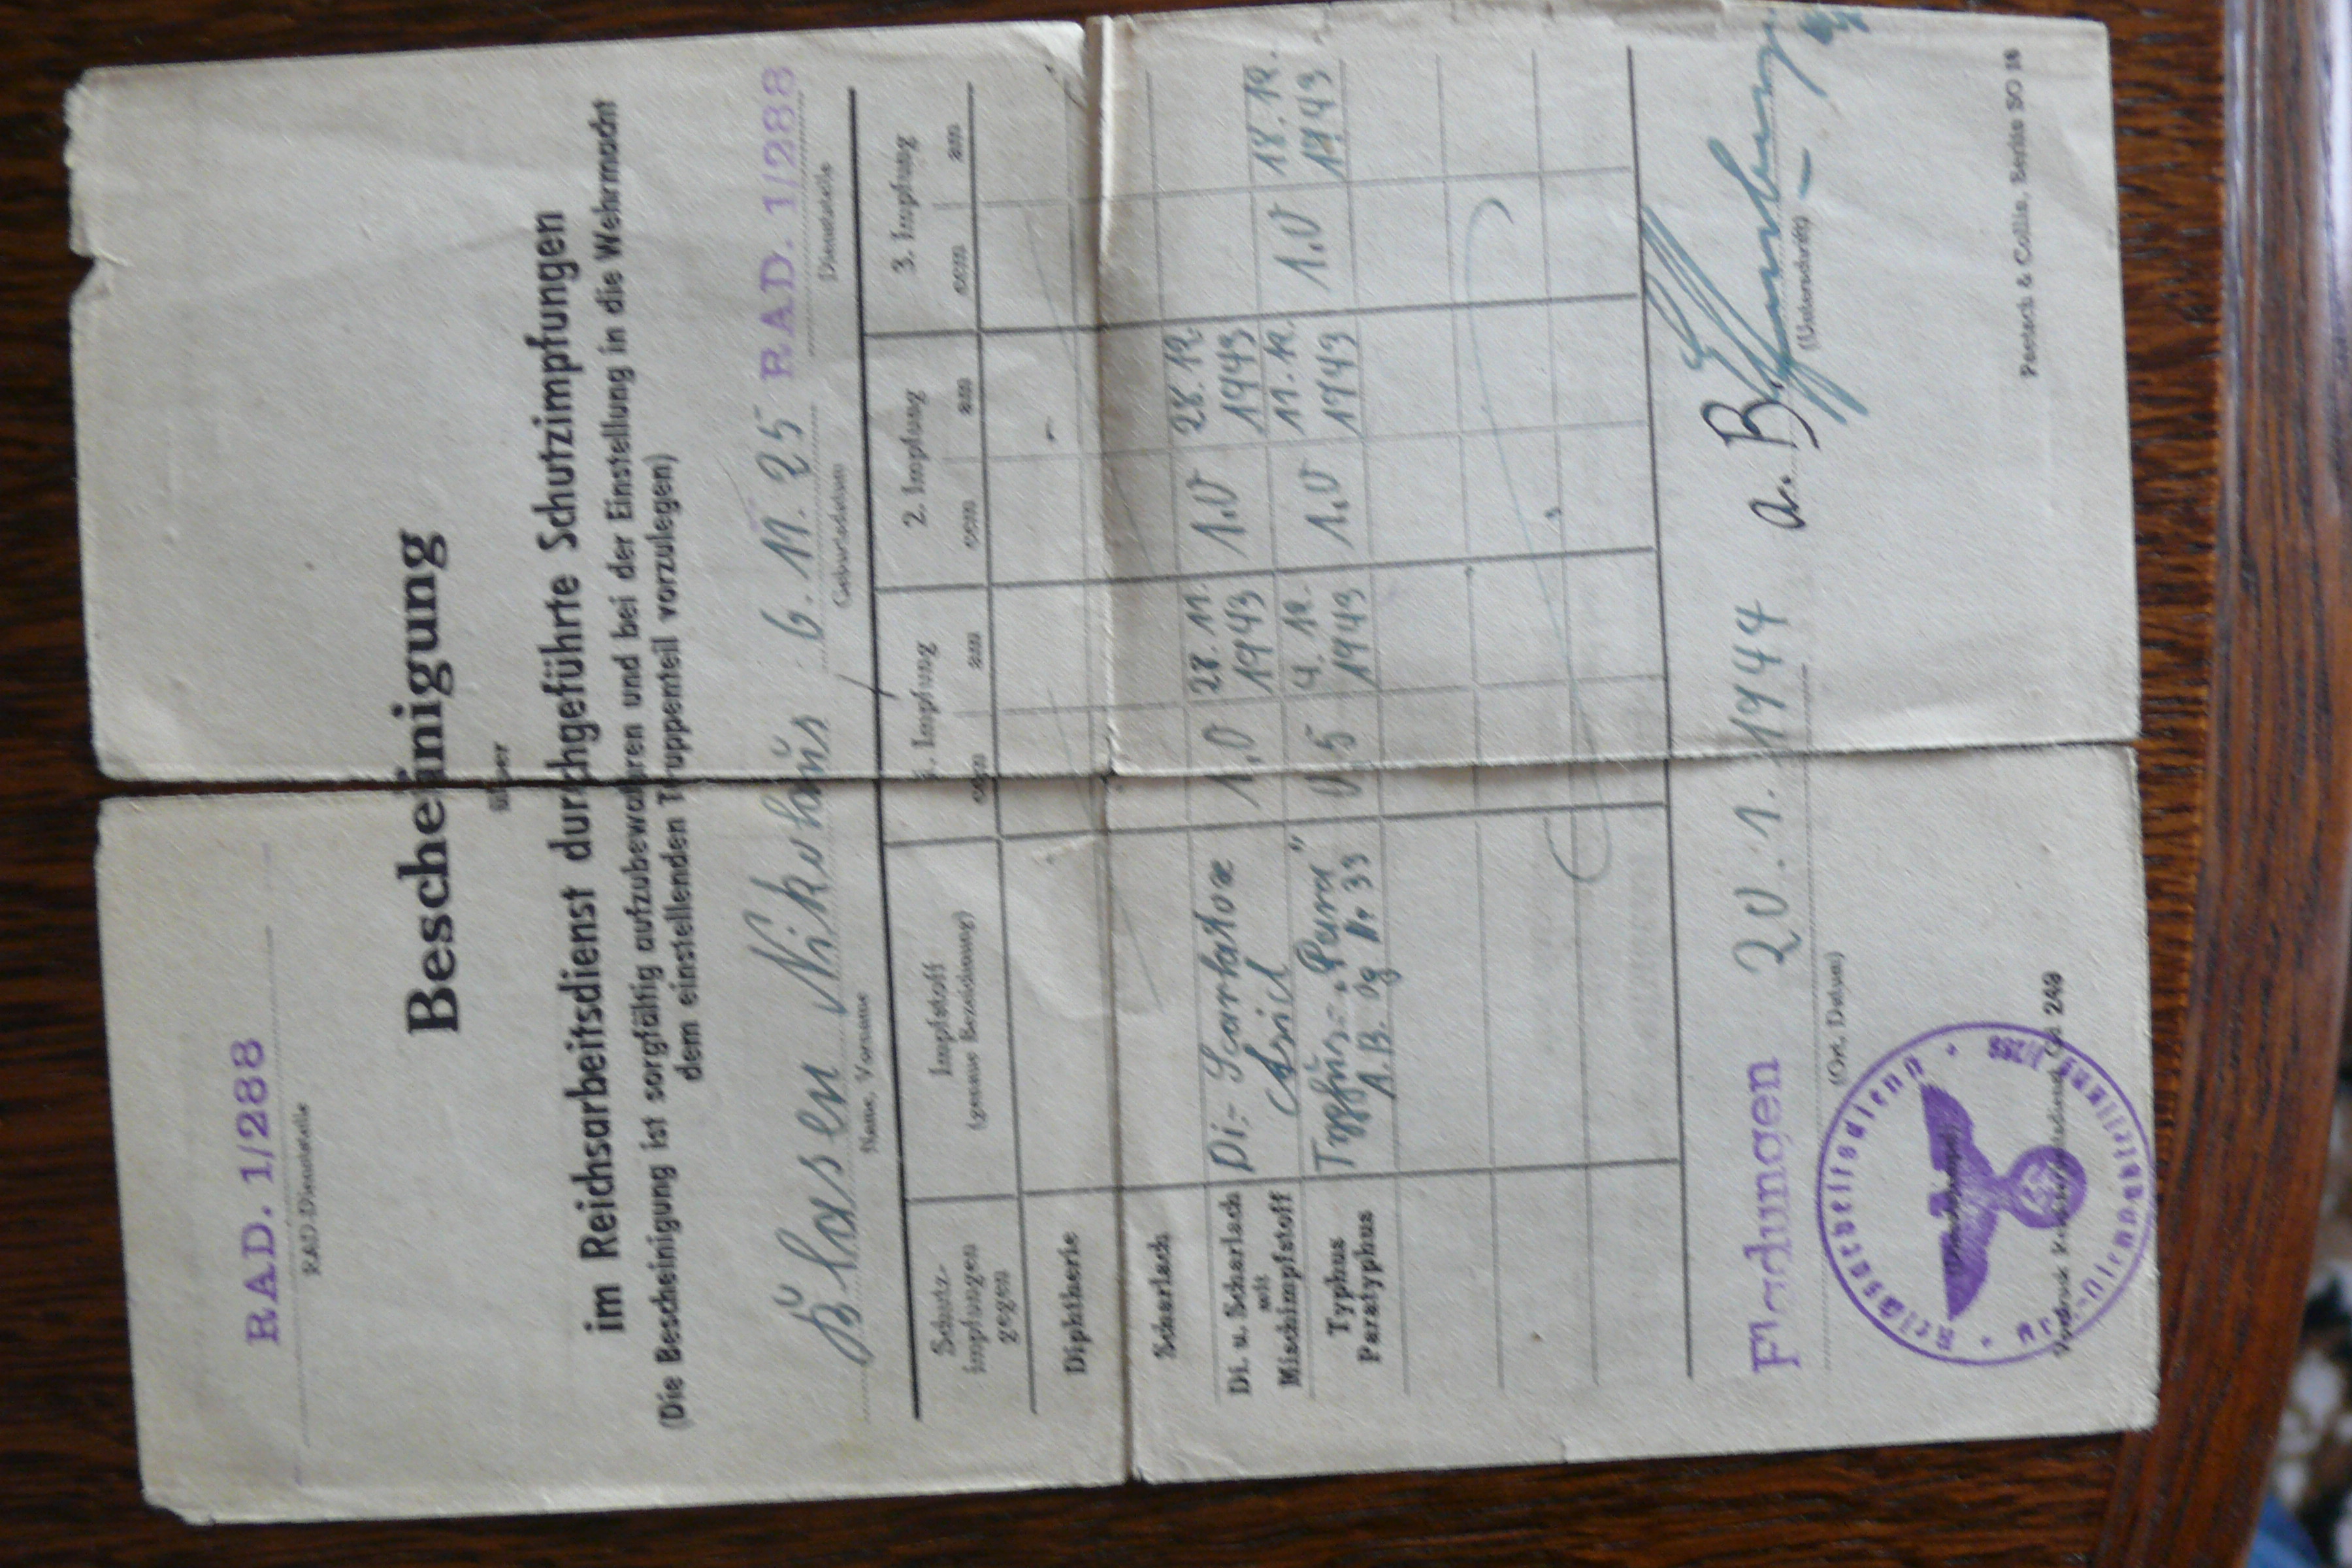 RAD. 1/288
RAD-Dienststelle
Bescheinigung
über
im Reichsarbeitsdienst durchgeführte Schutzimpfungen
(Die Bescheinigung ist sorgfältig aufzubewahren und bei der Einstellung in die Wehrmacht
dem einstellenden Truppenteil vorzulegen)
Blasen Nikolaus 6.11.25 RAD. 1/288
Name, Vorname Geburtsdatum Dienststelle
Schutz-impfungen gegen Impfstoff (genaue Bezeichnung) 1. Impfung 2. Impfung 3. Impfung
ccm am ccm am ccm am
Diphtherie
Scharlach
Di. u. Scharlach mit Mischimpfstoff Di.- Scarlatox Asid 1,0 28.11. 1943 1,0 28.12. 1943
Typhus Paratyphus Typhus- „Pura" A.B. Og. Nr 39 0,5 4.12. 1943 1,0 11.12. 1943 1,0 18.12. 1943
Fladungen 20.1.1944
(Ort, Datum) (Unterschrift)
Reichsarbeitsdienst
1/288
249
Paetsch & Collin, Berlin SO 16